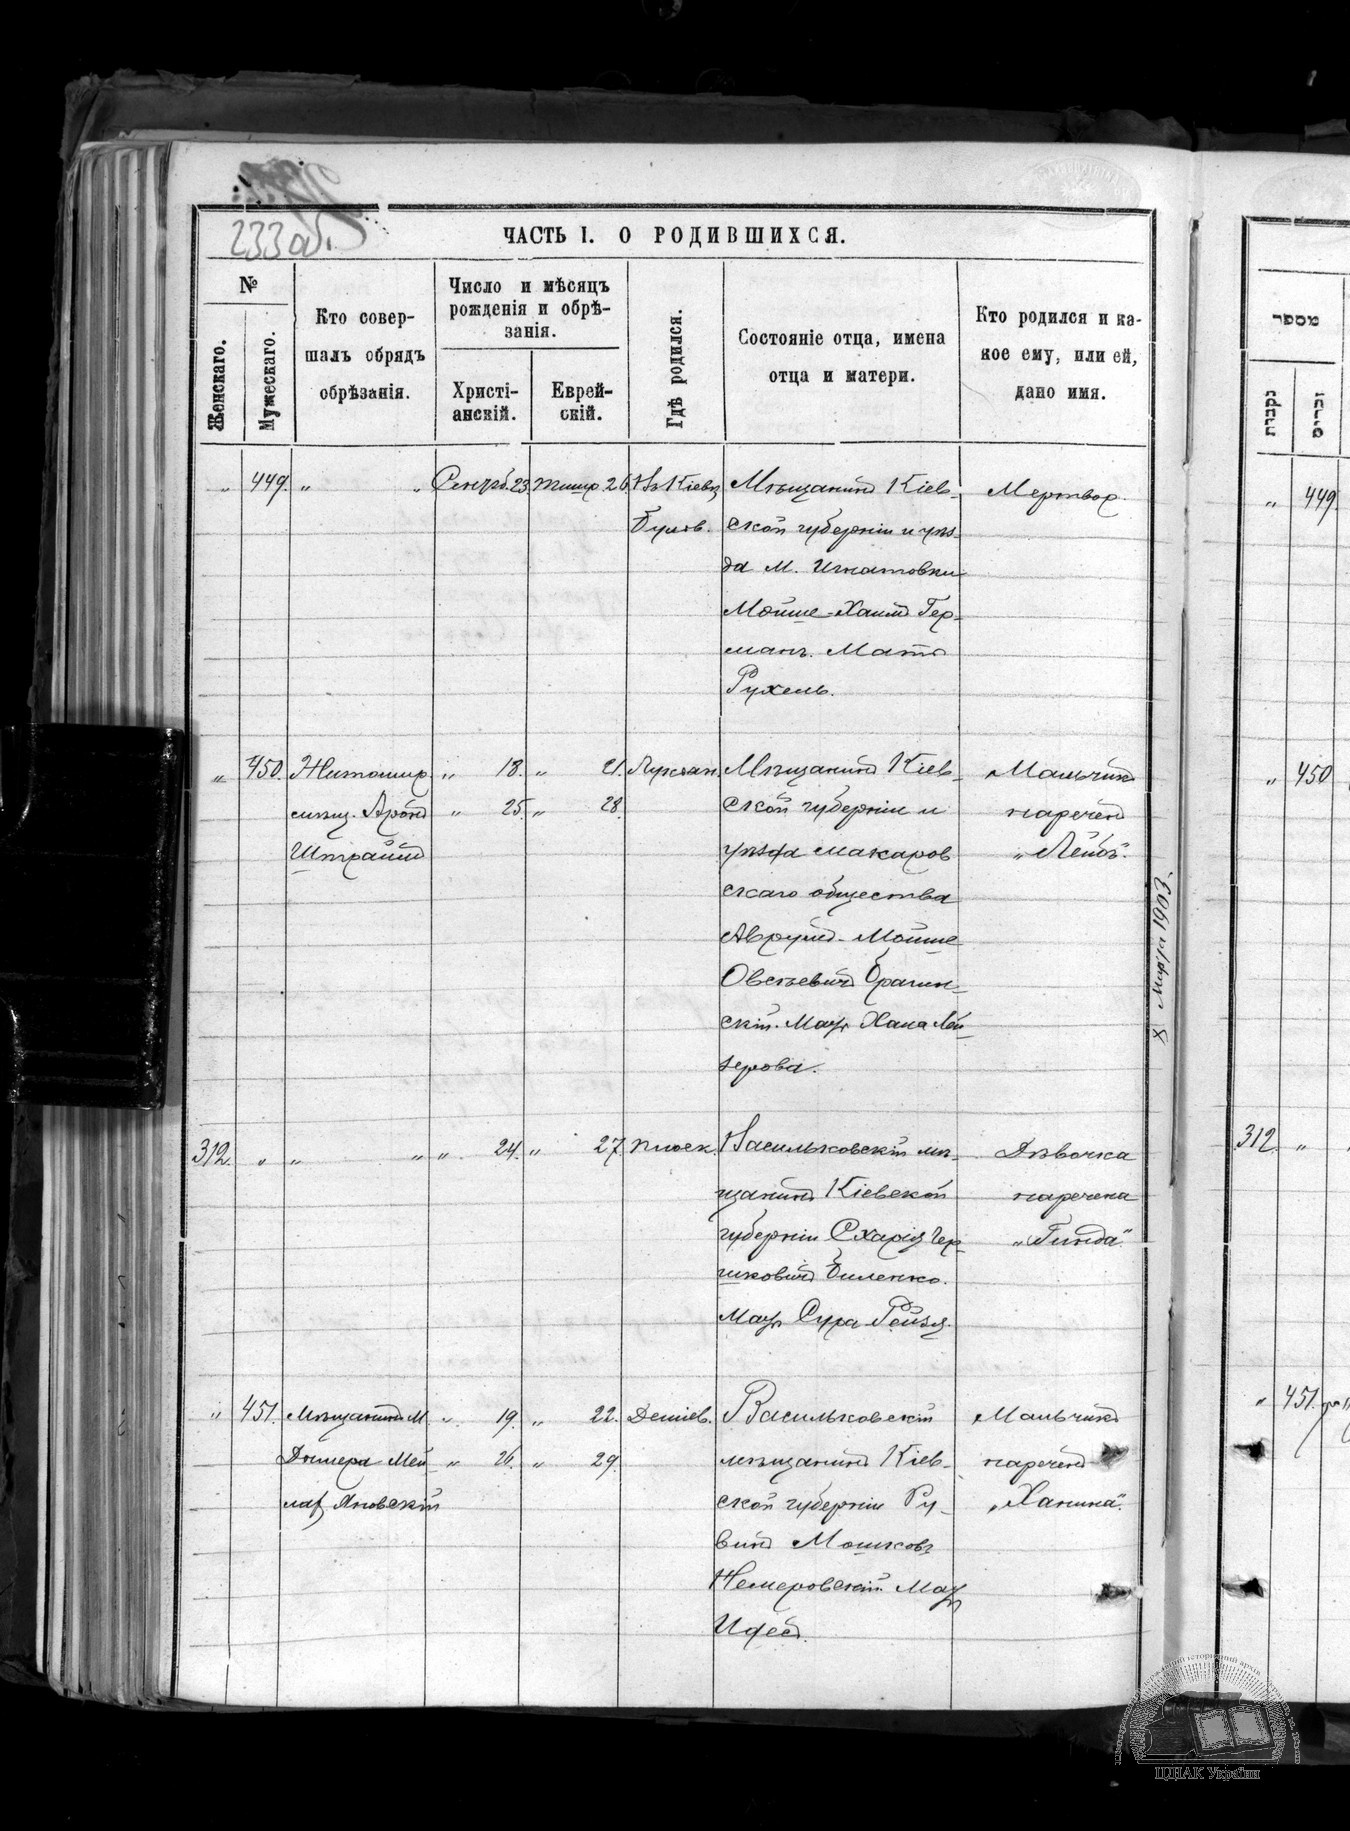 233 об.
ЧАСТЬ I. О РОДИВШИХСЯ.
№
Женскаго.
Мужескаго.
Кто совер-
шалъ обрядъ
обрѣзанія.
Число и мѣсяцъ
рожденія и обрѣ-
занія.
Христі-
анскій.
Еврей-
скій.
Гдѣ родился.
Состояніе отца, имена
отца и матери.
Кто родился и ка-
кое ему, или ей,
дано имя.
„ 449. „ „ Сентяб. 23. Тишр. 26. Въ Кіевѣ Мѣщанинъ Кіев-
Бульв. ской губерніи и уѣз-
да М. Игнатовки
Мойше-Хаимъ Гер-
манъ. Мать
Рухель.
Мертвор.
„ 450. Житомир. „ 18. „ 21. Лукьян. Мѣщанинъ Кіев-
смѣщ. Аронъ „ 25. „ 28. ской губерніи и
Штраймъ уѣзда Макаров
скаго общества
Аврумъ-Мойше
Овсѣевичъ Брагин-
скій. Мать Хана Лей
зерова.
Мальчикъ
нареченъ
„Лейбъ“.
312. „ „ „ „ 24. „ 27. Плоск. Васильковскій мѣ-
щанинъ Кіевской
губерніи Схарія Гер-
шковичъ Биленко.
Мать Сура-Рейзя.
Дѣвочка
наречена
„Гинда“.
„ 451. Мѣщанинъ М. „ 19. „ 22. Деміев. Васильковскій
Дымера Мей- „ 26. „ 29. мѣщанинъ Кіев-
лах Яновскій ской губерніи Ру-
винъ Мошковъ
Немеровскій Мать
Идесъ.
Мальчикъ
нареченъ
„Ханина“.
8 Марта 1903
מספר
נקבות
זכרים
„ 449
„ 450
312 „
„ 451.
ЦДІАК України